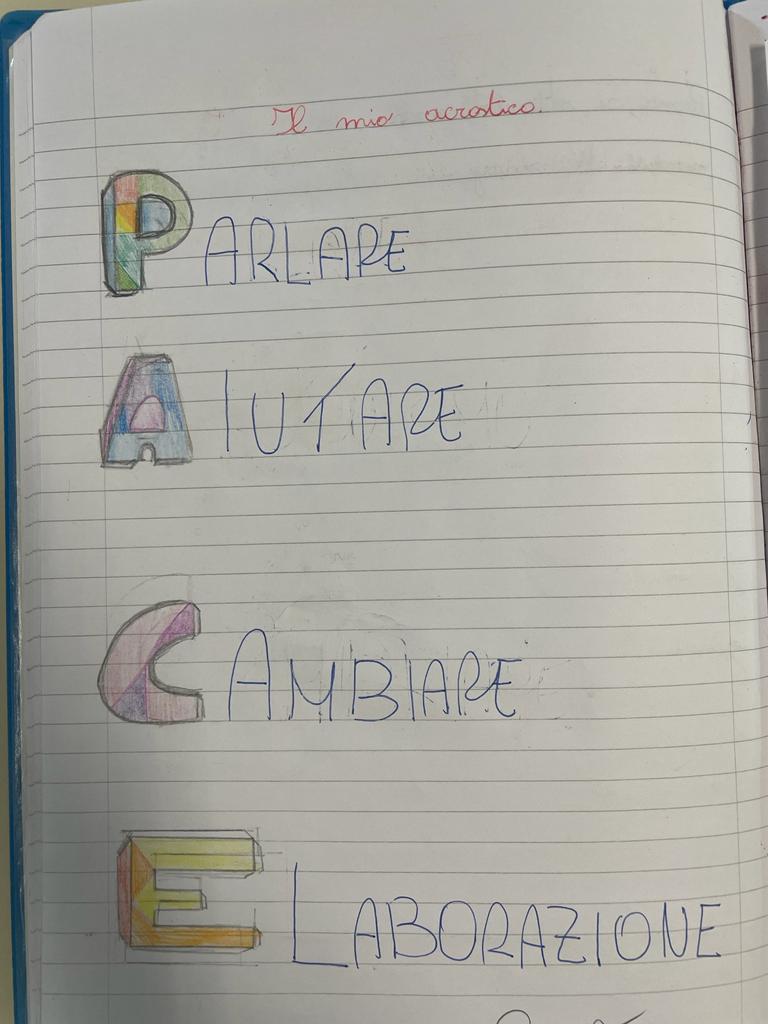 Il mio acrostico.
PARLARE
AIUTARE
CAMBIARE
ELABORAZIONE